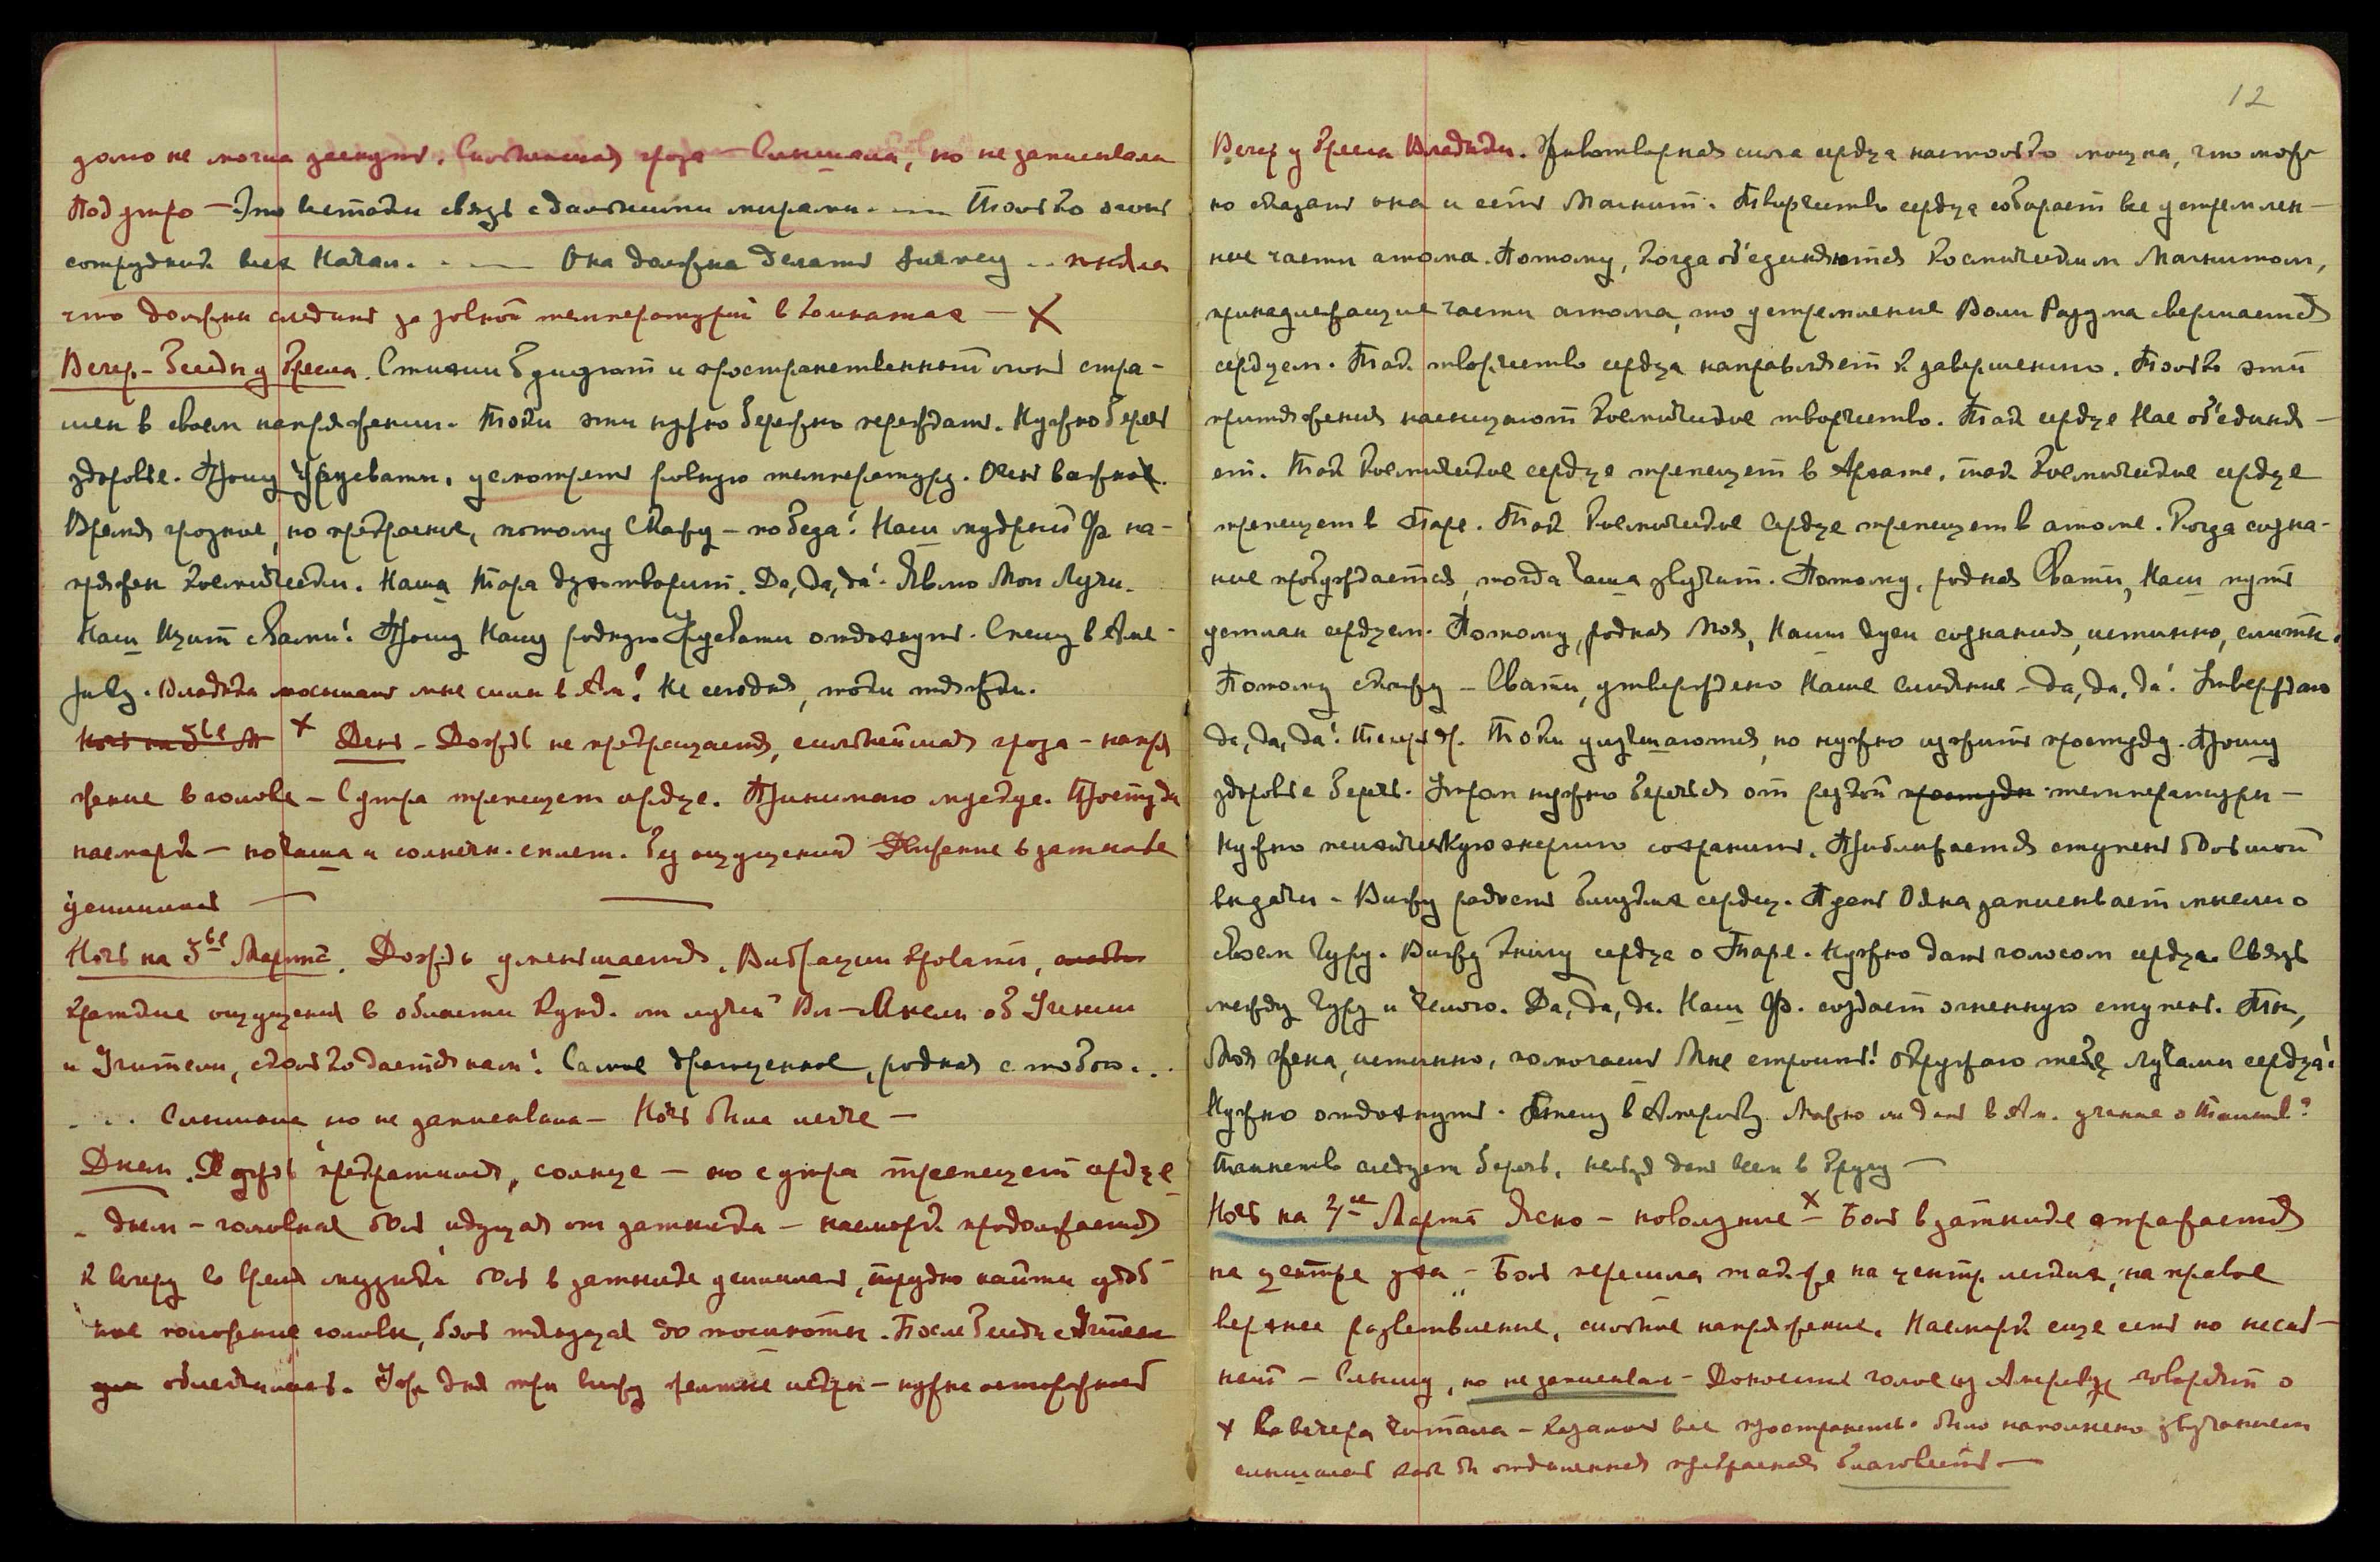 долго не могла заснуть. Сильнейшая гроза – Слышала, но не записывала
Под утро – Это кстати связь с дальними мирами. — Только огонь
сотрудник всех Начал. . — Она должна делать . .
что должны следить за ровной температурой в комнатах – X
Вечер – Беседы у Кресла. Стихии бушуют и пространственный огонь стра-
шен в своем напряжении. Токи эти нужно бережно переждать. Нужно беречь
здоровье. Прошу Урусвати, усмотреть ровную температуру. Очень важно.
Время грозное, но прекрасное, потому Скажу – победа! Наш мудрый Ф. на-
пряжен космически. Наша Тара духотворит. Да, да, да! Явлю Мои Лучи.
Наш Щит с вами! Прошу Нашу родную Урусвати отдохнуть. Спешу в Аме-
рику. Владыка посылает мне силы в Ам.? Не сегодня, токи тяжки.
Ночь на 3ье М X День – Дождь не прекращается, сильнейшая гроза – напря
жение в голове – С утра трепещет сердце. Принимаю мускус. Простуда
насморк – но чаша и солнечн. сплет. без ощущений Движение в затылке
усилилось —
Ночь на 3ье Марта. Дождь уменьшается. Вибрации кровати,
краткие ощущения в области Кунд. от лучей Вл – Мысли об Учении
и Учителе, сколько дается нам! Самое драгоценное, родная с тобою. . .
. . . Слышала но не записывала – Ночь была легче –
Днем. Дождь прекратился, солнце – но с утра трепещет сердце
– днем – головная боль, идущая от затылка – насморк продолжается
К вечеру во время музыки боль в затылке усилилась, трудно найти удоб
ное положение головы, боль тянущая до тошноты. После Беседы с Учителем
облегчилась. Уже дня три вижу желтые искры – нужна осторожность
12
Вечер у Кресла Владыки. Животворная сила сердца настолько мощна, что мож
но сказать она и есть Магнит. Творчество сердца собирает все устремлен-
ные части атома. Потому, когда об'единяются Космическим Магнитом,
принадлежащие части атома, то устремление Воли Разума свершается
сердцем. Так творчество сердца направляет к завершению. Только эти
притяжения насыщают Космическое творчество. Так сердце Нас об'единя-
ет. Так Космическое сердце трепещет в Архате, так Космическое сердце
трепещет в Таре. Так Космическое Сердце трепещет в атоме. Когда созна-
ние пробуждается, тогда чаша звучит. Потому, родная Свати, Наш путь
устлан сердцем. Потому, родная Моя, Наши духи сознания, истинно, слиты.
Потому скажу – Свати, утверждено Наше слияние – да, да, да! Утверждаю
да, да, да! Теперь др. Токи улучшаются, но нужно изжить простуду. Прошу
здоровье беречь. Утром нужно беречься от резкой простуды температуры –
Нужно психическую энергию сохранить. Приближается ступень большой
выдачи – Вижу радость близких сердец. Пусть Одна записывает мысли о
своем Гуру. Вижу книгу сердца о Таре. Нужно дать голосом сердца. Связь
между Гуру и Челою. Да, да, да. Наш Ф. создает огненную ступень. Ты,
Моя жена, истинно, помогаешь Мне строить! Окружаю тебя лучами сердца!
Нужно отдохнуть. Спешу в Америку. Можно ли дать в Ам. учение о Таинств?
Таинство следует беречь, нельзя дать всем в Кругу –
Ночь на 4ое Марта Ясно – новолуние X – Боль в затылке отражается
на центре уха – Боль перешла также на центр легких, на правое
верхнее разветвление, сильное напряжение. Насморк еще есть но несиль-
ный – Слышу, но не записываю – Доносится голос из Америки, говорят о
X С вечера читала – казалось все пространств. было наполнено звучанием
слышался как бы отдаленный прекрасный благовест –